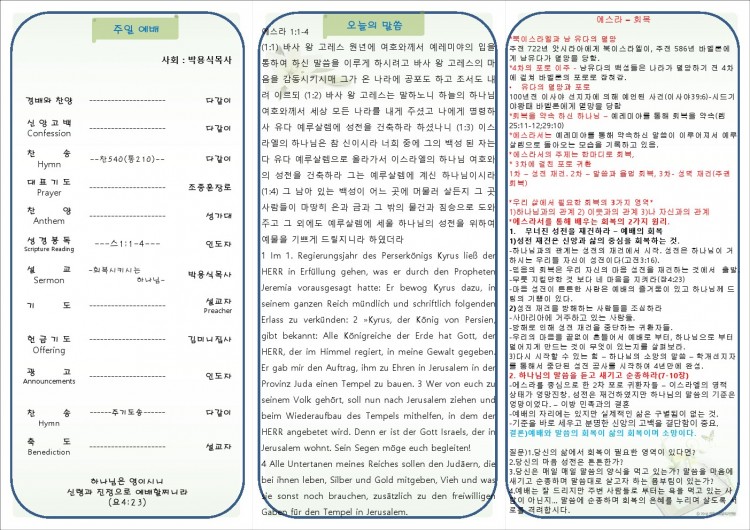 주일 예배
사회 : 박용식목사
경배와 찬양 ------------------ 다같이
신앙고백 ------------------ 다같이
Confession
찬 송 --찬540(통210)-- 다같이
Hymn
대표기도 ------------------ 조종훈장로
Prayer
찬 양 ------------------ 성가대
Anthem
성경봉독 ---스1:1-4--- 인도자
Scripture Reading
설 교 -회복시키시는 박용식목사
Sermon 하나님-
기 도 ------------------ 설교자
Preacher
헌금기도 ------------------ 김미니집사
Offering
광 고 ------------------ 인도자
Announcements
찬 송 ------주기도송------ 다같이
Hymn
축 도 ------------------ 설교자
Benediction
하나님은 영이시니
신령과 진정으로 예배할찌니라
(요4:23)
오늘의 말씀
에스라 1:1-4
(1:1) 바사 왕 고레스 원년에 여호와께서 예레미야의 입을
통하여 하신 말씀을 이루게 하시려고 바사 왕 고레스의 마
음을 감동시키시매 그가 온 나라에 공포도 하고 조서도 내
려 이르되 (1:2) 바사 왕 고레스는 말하노니 하늘의 하나님
여호와께서 세상 모든 나라를 내게 주셨고 나에게 명령하
사 유다 예루살렘에 성전을 건축하라 하셨나니 (1:3) 이스
라엘의 하나님은 참 신이시라 너희 중에 그의 백성 된 자는
다 유다 예루살렘으로 올라가서 이스라엘의 하나님 여호와
의 성전을 건축하라 그는 예루살렘에 계신 하나님이시라
(1:4) 그 남아 있는 백성이 어느 곳에 머물러 살든지 그 곳
사람들이 마땅히 은과 금과 그 밖의 물건과 짐승으로 도와
주고 그 외에도 예루살렘에 세울 하나님의 성전을 위하여
예물을 기쁘게 드릴지니라 하였더라
1 Im 1. Regierungsjahr des Perserkönigs Kyrus ließ der
HERR in Erfüllung gehen, was er durch den Propheten
Jeremia vorausgesagt hatte: Er bewog Kyrus dazu, in
seinem ganzen Reich mündlich und schriftlich folgenden
Erlass zu verkünden: 2 »Kyrus, der König von Persien,
gibt bekannt: Alle Königreiche der Erde hat Gott, der
HERR, der im Himmel regiert, in meine Gewalt gegeben.
Er gab mir den Auftrag, ihm zu Ehren in Jerusalem in der
Provinz Juda einen Tempel zu bauen. 3 Wer von euch zu
seinem Volk gehört, soll nun nach Jerusalem ziehen und
beim Wiederaufbau des Tempels mithelfen, in dem der
HERR angebetet wird. Denn er ist der Gott Israels, der in
Jerusalem wohnt. Sein Segen möge euch begleiten!
4 Alle Untertanen meines Reiches sollen den Judäern, die
bei ihnen leben, Silber und Gold mitgeben, Vieh und was
sie sonst noch brauchen, zusätzlich zu den freiwilligen
Gaben für den Tempel in Jerusalem.
에스라 – 회복
*북이스라엘과 남 유다의 멸망
주전 722년 앗시리아에게 북이스라엘이, 주전 586년 바벨론에
게 남유다가 멸망을 당함.
*4차의 포로 이주 - 남유다의 백성들은 나라가 멸망하기 전 4차
에 걸쳐 바벨론의 포로로 잡혀감.
• 유다의 멸망과 포로
100년전 이사야 선지자에 의해 예언된 사건(이사야39:6)-시드기
야왕때 바벨론에게 멸망을 당함
*회복을 약속 하신 하나님 – 예레미야를 통해 회복을 약속(렘
25:11-12;29:10)
*에스라서는 예레미야를 통해 약속하신 말씀이 이루어져서 예루
살렘으로 돌아오는 모습을 기록하고 있음.
*에스라서의 주제는 한마디로 회복,
* 3차에 걸친 포로 귀환
1차 – 성전 재건. 2차 – 말씀과 율법 회복, 3차- 성벽 재건(주권
회복)
*우리 삶에서 필요한 회복의 3가지 영역*
1)하나님과의 관계 2) 이웃과의 관계 3)나 자신과의 관계
*에스라서를 통해 배우는 회복의 2가지 원리.
1. 무너진 성전을 재건하라 – 예배의 회복
1)성전 재건은 신앙과 삶의 중심을 회복하는 것.
-하나님과의 관계는 성전의 재건에서 시작. 성전은 하나님이 거
하시는 우리들 자신이 성전이다(고전3:16).
-믿음의 회복은 우리 자신의 마음 성전을 재건하는 것에서 출발
-무릇 지킬만한 것 보다 네 마음을 지켜라(잠4:23)
-마음 성전이 튼튼한 사람은 예배의 즐거움이 있고 하나님께 드
림의 기쁨이 있다.
2)성전 재건을 방해하는 사람들을 조심하라
-사마리아에 거주하고 있는 사람들.
-방해로 인해 성전 재건을 중단하는 귀환자들.
-우리의 마음을 끝없이 흔들어서 예배로 부터, 하나님으로 부터
멀어지게 만드는 것이 무엇이 있는지를 살펴보라.
3)다시 시작할 수 있는 힘 – 하나님의 소망의 말씀 – 학개선지자
를 통해서 중단된 성전 공사를 시작하여 4년만에 완성.
2. 하나님의 말씀을 듣고 새기고 순종하라(7-10장)
-에스라를 중심으로 한 2차 포로 귀환자들 – 이스라엘의 영적
상태가 엉망진창. 성전은 재건하였지만 하나님의 말씀의 기준은
엉망이었다. – 이방 민족과의 결혼
-예배의 자리에는 있지만 실제적인 삶은 구별됨이 없는 것.
-기준을 바로 세우고 분명한 신앙의 고백을 결단함이 중요.
결론)예배와 말씀의 회복이 삶의 회복이며 소망이다.
질문)1.당신의 삶에서 회복이 필요한 영역이 있다면?
2.당신의 마음 성전은 튼튼한가?
3.당신은 매일 매일 말씀의 양식을 먹고 있는가? 말씀을 마음에
새기고 순종하며 말씀대로 살고자 하는 몸부림이 있는가?
4.예배는 잘 드리지만 주변 사람들로 부터는 욕을 먹고 있는 사
람이 아닌지... 말씀에 순종하며 회복의 은혜를 누리며 살도록 서
로를 격려합시다.